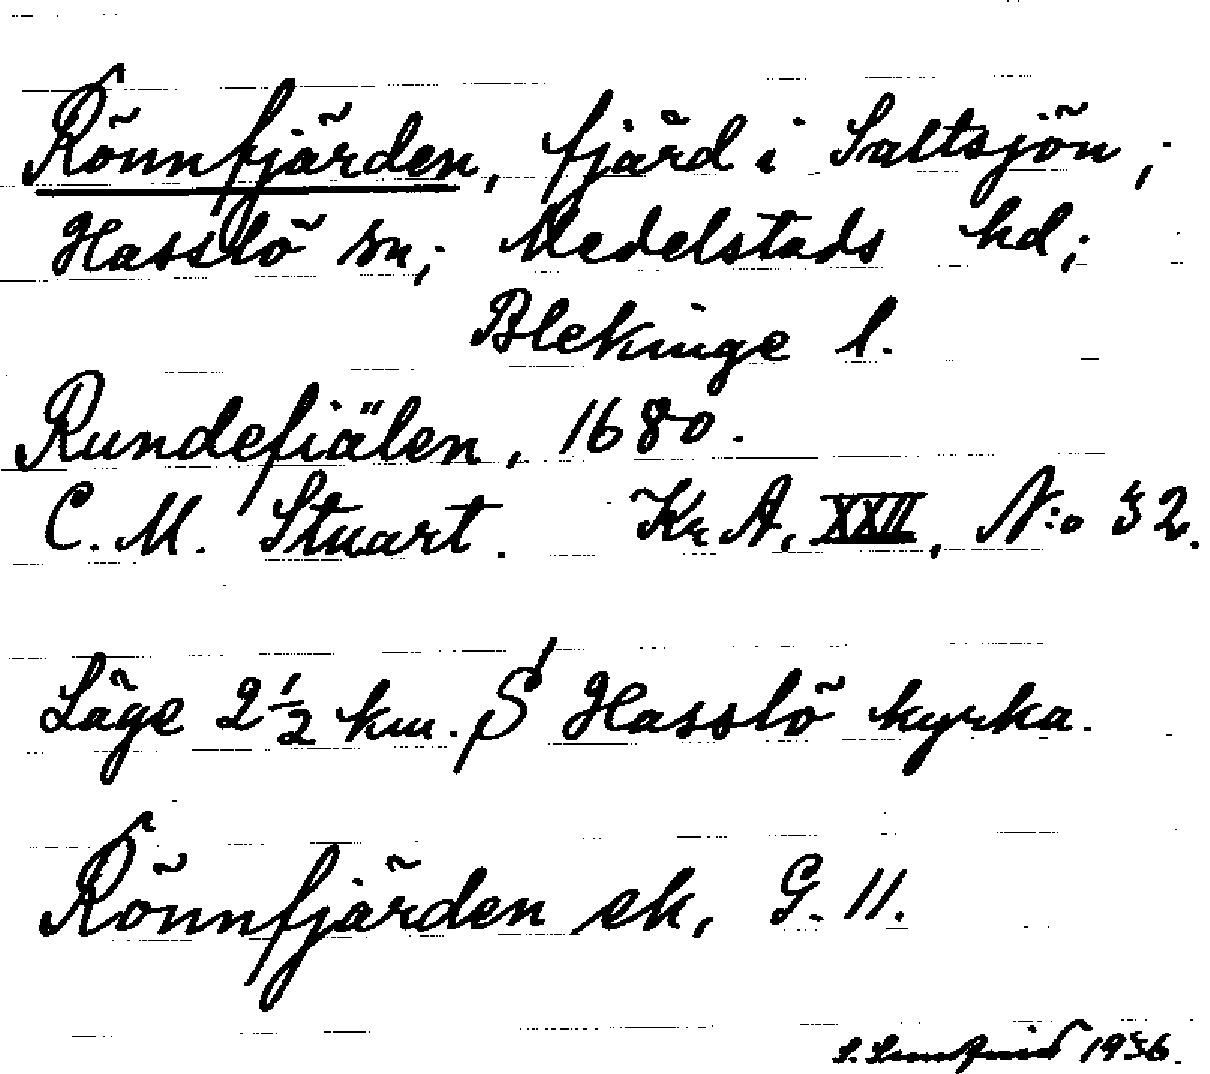 Rönnfjärden, fjärd i Saltsjön;
Hasslö sn; Medelstads hd;
Blekinge l.
Rundefiälen, 1680.
C. M. Stuart. Kr. A, XXII, N:o 32.
Läge 2 1/2 km. S Hasslö kyrka.
Rönnfjärden ek, G. 11.
1936.